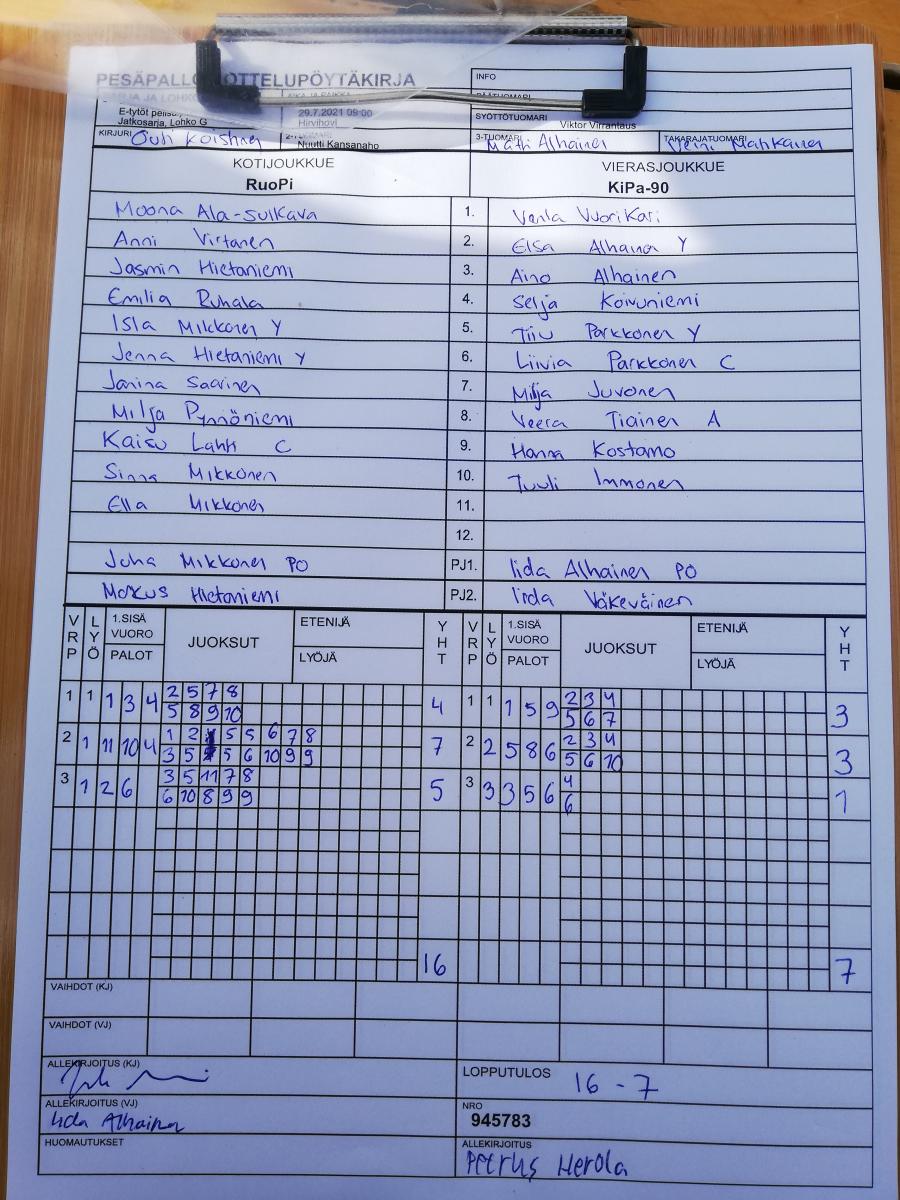 PESÄPALLO OTTELUPÖYTÄKIRJA
INFO
E-tytöt
Jatkosarja, Lohko G
29.7.2021 09:00
Hirvihovi
SYÖTTÖTUOMARI
Viktor Virrantaus
KIRJURI Outi Koistinen
Nuutti Kansanaho
3-TUOMARI Matti Alhainen
TAKARAJATUOMARI
KOTIJOUKKUE VIERASJOUKKUE
RuoPi KiPa-90
Moona Ala-Sulkava 1. Venla Vuorikari
Anni Virtanen 2. Elsa Alhainen Y
Jasmin Hietaniemi 3. Aino Alhainen
Emilia Ruhala 4. Selja Koivuniemi
Isla Mikkonen Y 5. Tiiu Parkkonen Y
Jenna Hietaniemi Y 6. Liivia Parkkonen C
Janina Saarinen 7. Milja Juvonen
Milja Pynnöniemi 8. Veera Tiainen A
Kaisu Lahti C 9. Hanna Kostamo
Sinna Mikkonen 10. Tuuli Immonen
Ella Mikkonen 11.
12.
Juha Mikkonen PO PJ1. Iida Alhainen PO
Markus Hietaniemi PJ2. Iida Väkeväinen
VRP LYÖ 1.SISÄ VUORO PALOT JUOKSUT ETENIJÄ LYÖJÄ YHT VRP LYÖ 1.SISÄ VUORO PALOT JUOKSUT ETENIJÄ LYÖJÄ YHT
1 1 1 3 4 2 5 7 8 4 1 1 1 5 9 2 3 4 3
5 8 9 10 5 6 7
2 1 11 10 4 1 2 5 5 6 7 8 7 2 2 5 8 6 2 3 4 3
3 5 5 6 10 9 9 5 6 10
3 1 2 6 3 5 11 7 8 5 3 3 3 5 6 4 1
6 10 8 9 9 6
16 7
VAIHDOT (KJ)
VAIHDOT (VJ)
ALLEKIRJOITUS (KJ) LOPPUTULOS 16 - 7
ALLEKIRJOITUS (VJ) Iida Alhainen NRO
945783
HUOMAUTUKSET ALLEKIRJOITUS
Petrus Herola